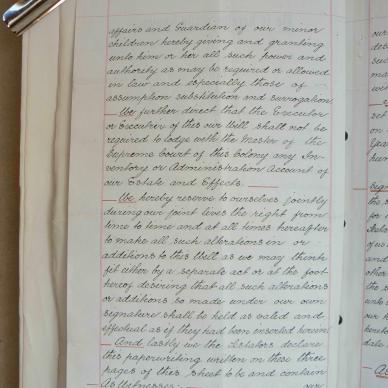 affairs and Guardian of our minor
children hereby giving and granting
unto him or her all such power and
authority as may be required or allowed
in law and especially those of
assumption substitution and surrogation
We further direct that the Executor
or Executrix of this our Will shall not be
required to lodge with the Master of the
Supreme Court of this Colony any In-
ventory or Administration Account of
our Estate and Effects.
We hereby reserve to ourselves jointly
during our joint lives the right from
time to time and at all times hereafter
to make all such alterations in or
additions to this Will as we may think
fit either by a separate act or at the foot
hereof desiring that all such alterations
or additions so made under our own
signature shall be held as valid and
effectual as if they had been inserted herein
And lastly we the Testators declare
this paperwriting written on these three
pages of this sheet to be and contain
As Witnesses: our